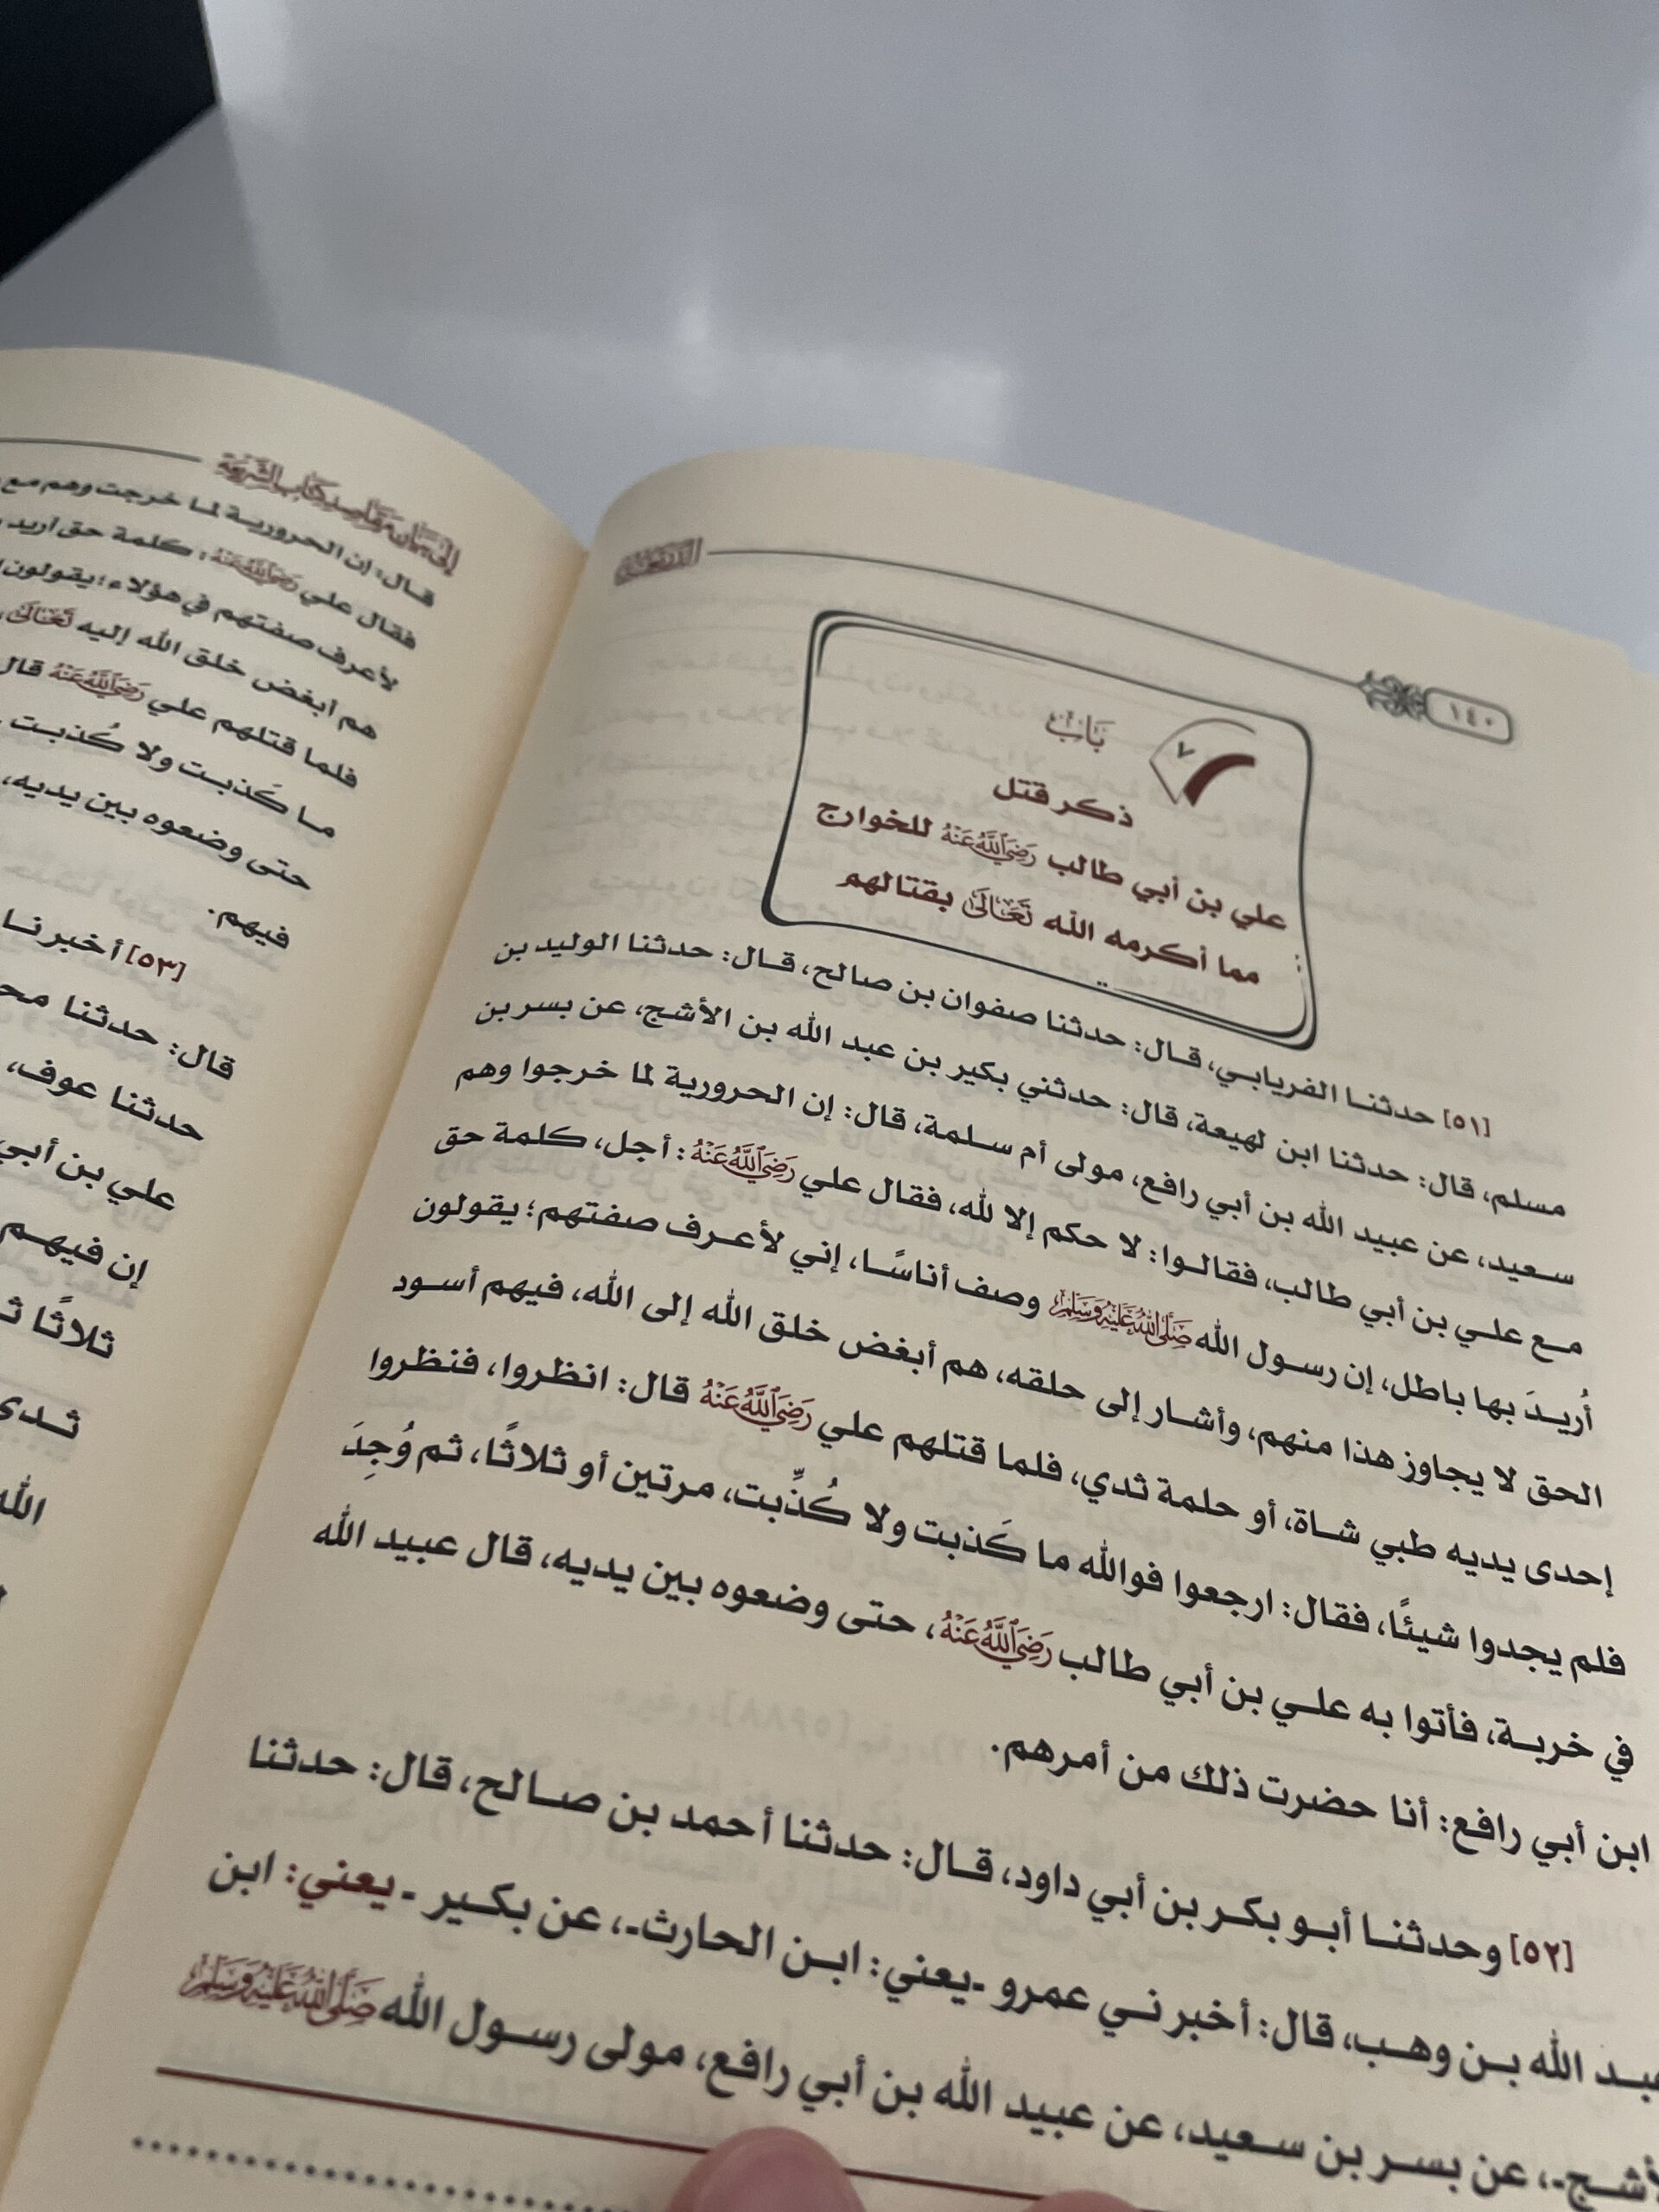 ١٤٠
باب
٧
ذكر قتل
علي بن أبي طالب رَضِيَ اللَّهُ عَنْهُ للخوارج
مما أكرمه الله تَعَالَى بقتالهم
[٥١] حدثنا الفريابي، قال: حدثنا صفوان بن صالح، قال: حدثنا الوليد بن
مسلم، قال: حدثنا ابن لهيعة، قال: حدثني بكير بن عبد الله بن الأشج، عن بسر بن
سعيد، عن عبيد الله بن أبي رافع، مولى أم سلمة، قال: إن الحرورية لما خرجوا وهم
مع علي بن أبي طالب، فقالوا: لا حكم إلا لله، فقال علي رَضِيَ اللَّهُ عَنْهُ: أجل، كلمة حق
أُريدَ بها باطل، إن رسول الله صَلَّى اللَّهُ عَلَيْهِ وَسَلَّمَ وصف أناسًا، إني لأعرف صفتهم؛ يقولون
الحق لا يجاوز هذا منهم، وأشار إلى حلقه، هم أبغض خلق الله إلى الله، فيهم أسود
إحدى يديه طبي شاة، أو حلمة ثدي، فلما قتلهم علي رَضِيَ اللَّهُ عَنْهُ قال: انظروا، فنظروا
فلم يجدوا شيئًا، فقال: ارجعوا فوالله ما كَذبت ولا كُذِّبت، مرتين أو ثلاثًا، ثم وُجِدَ
في خربة، فأتوا به علي بن أبي طالب رَضِيَ اللَّهُ عَنْهُ، حتى وضعوه بين يديه، قال عبيد الله
ابن أبي رافع: أنا حضرت ذلك من أمرهم.
[٥٢] وحدثنا أبو بكر بن أبي داود، قال: حدثنا أحمد بن صالح، قال: حدثنا
عبد الله بن وهب، قال: أخبرني عمرو -يعني: ابن الحارث-، عن بكير - يعني: ابن
الأشج-، عن بسر بن سعيد، عن عبيد الله بن أبي رافع، مولى رسول الله صَلَّى اللَّهُ عَلَيْهِ وَسَلَّمَ
كتاب الشريعة
قال: إن الحرورية لما خرجت وهم مع
فقال علي رَضِيَ اللَّهُ عَنْهُ: كلمة حق أريد
لأعرف صفتهم في هؤلاء؛ يقولون
هم أبغض خلق الله إليه تَعَالَى،
فلما قتلهم علي رَضِيَ اللَّهُ عَنْهُ قال
ما كَذبت ولا كُذبت
حتى وضعوه بين يديه،
فيهم.
[٥٣] أخبرنا
قال: حدثنا
حدثنا عوف،
علي بن أبي
إن فيهم
ثلاثًا
ثدي
الله